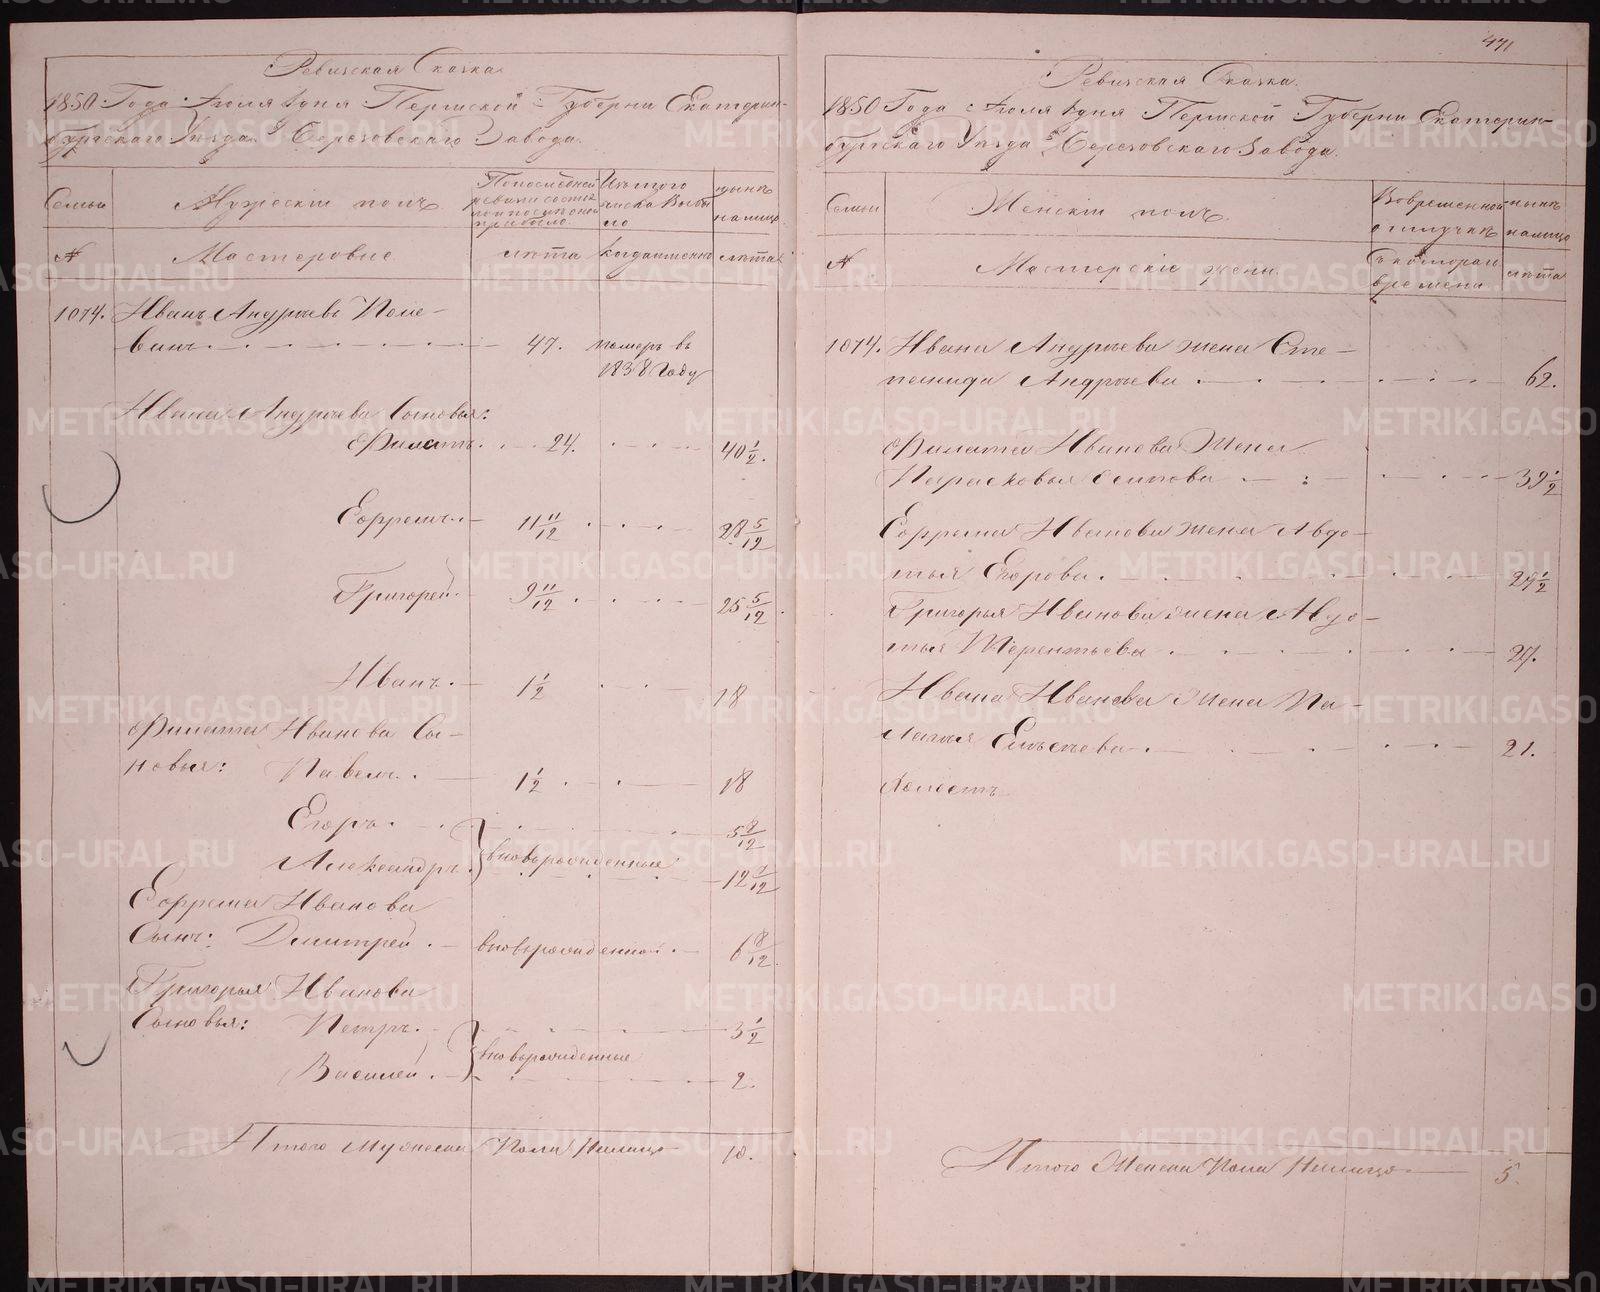 471
Ревизская Сказка
1850 Года: Июля дня Пермской Губерни Екатерин-
бургскаго Уезда Березовскаго Завода.
Семьи
Мужескiй полъ
По последней ревизи состо
и после оной прибыло
Изъ того числа выбы
ло
ныне
на лицо
№
Мастеровые
лѣта
когда именно
лѣта
1074. Иванъ Андреевъ Поле-
винъ 47. померъ въ
1838 году
Ивана Андреева Сыновья:
Филатъ 24. 40 1/2.
Ефремъ 11 11/12 28 5/12
Григорей 9 11/12 25 5/12
Иванъ 1 1/2 18
Филата Иванова Сы-
новья: Павелъ 1 1/2 18
Егоръ
Александръ вновьрожденные
Ефрема Иванова
Сынъ: Дмитрей вновьрожденной 6 8/12
Григорья Иванова
Сыновья: Петръ 3 1/2
вновьрожденные
Василей 2.
Итого Мужеска Пола Налицо 10.
Ревизская Сказка.
1850 Года: Июля дня Пермской Губерни Екатерин-
бургскаго Уезда Березовскаго Завода.
Семьи
Женскiй полъ.
Во временной
отлучке
ныне
налицо
№
Мастерскiе жены.
Съ котораго
времени
лѣта
1074. Ивана Андреева жена Сте-
панида Андреева 62.
Филата Иванова Жена
Парасковья Осипова 39 1/2
Ефрема Иванова жена Авдо-
тья Егорова. 29 1/2
Григорья Иванова жена Авдо-
тья Терентьева 27.
Ивана Иванова Жена Пе-
лагея 21.
Холостъ
Итого Женска Пола Налицо 5.
METRIKI.GASO-URAL.RU